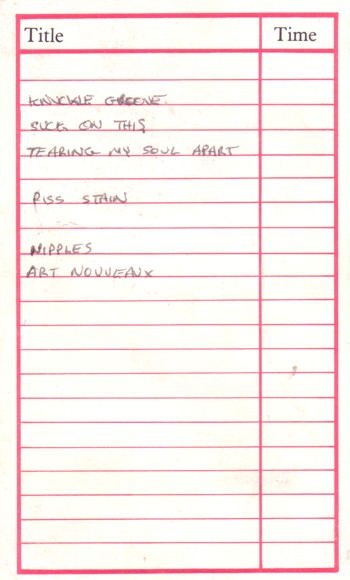 Title Time
KNUCKLE GREENE
SUCK ON THIS
TEARING MY SOUL APART
PISS STAIN
NIPPLES
ART NOUVEAUX